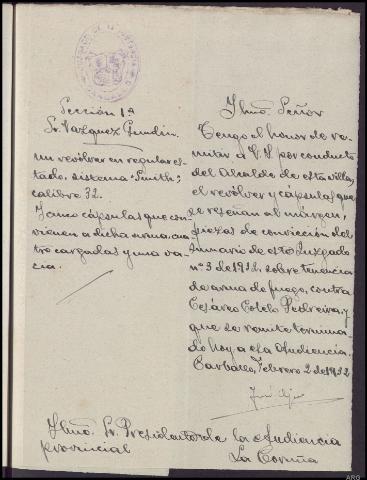 Sección 1ª
Sr. Vazquez Gundin.
un revólver en regular es-
tado, sistema "Smith",
calibre 32.
Y cinco cápsulas que con-
vienen a dicha arma, cua-
tro cargadas y una va-
cia.
Ilmo. Señor
Tengo el honor de re-
mitir a V.I. por conducto
del Alcalde de esta villa,
el revólver y cápsulas que
se reseñan al márgen,
piezas de convicción del
sumario de este Juzgado
nº 3 de 1932, sobre tenencia
de arma de fuego, contra
Cesáreo Cotelo Pedreira, y
que se remite termina-
do hoy a esa Audiencia.
Carballo, Febrero 2 de 1932
Ilmo. Sr. Presidente de la Audiencia
provincial
La Coruña
ARG